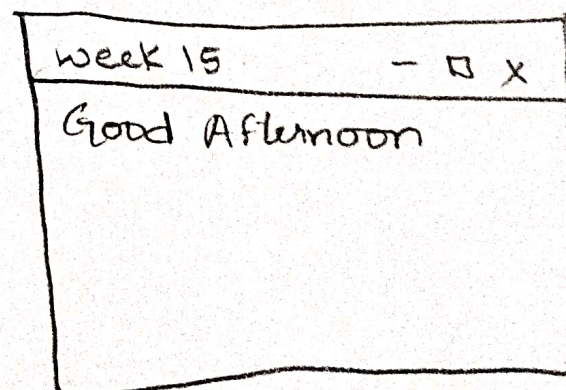 week 15
Good Afternoon